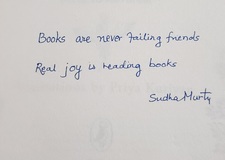 Books are never failing friends
Real joy is reading books
Sudha Murty